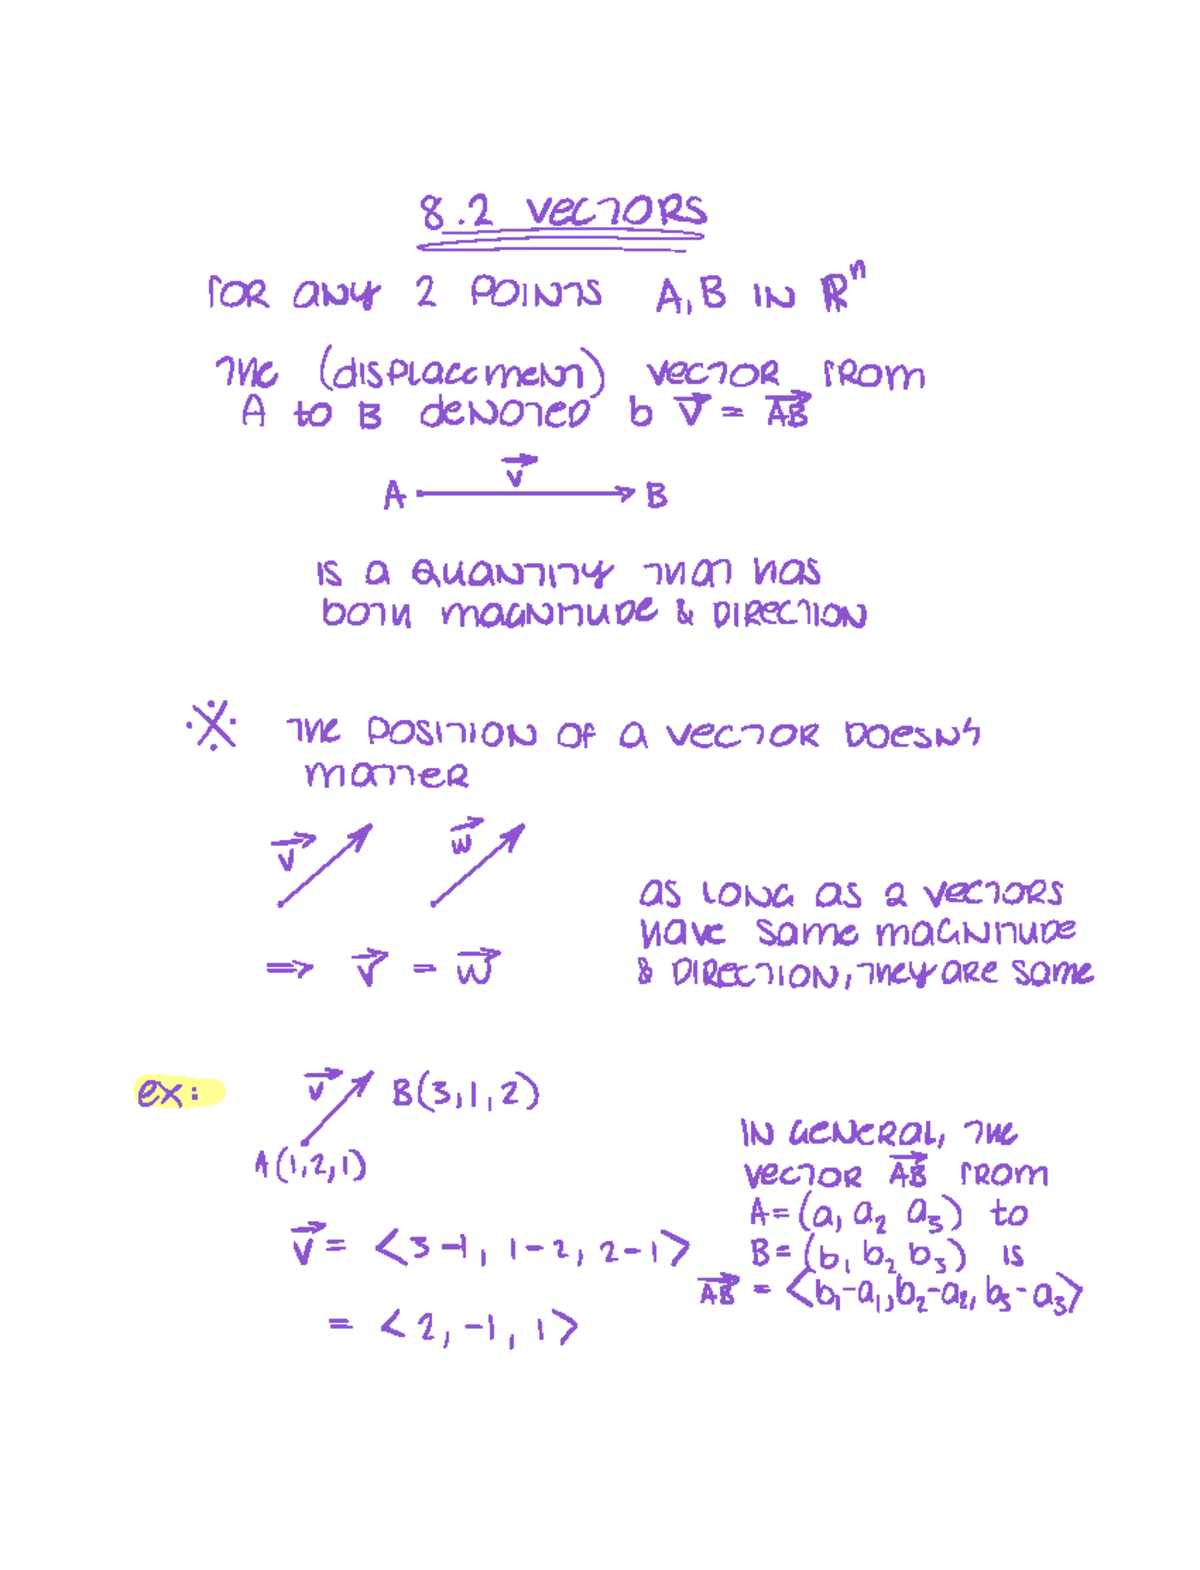 8.2 VECTORS
FOR ANY 2 POINTS A, B IN ℝⁿ
THE (DISPLACEMENT) VECTOR FROM
A to B DENOTED b v⃗ = A⃗B⃗
v⃗
A B
IS A QUANTITY THAT HAS
BOTH MAGNITUDE & DIRECTION
※ THE POSITION OF A VECTOR DOESN'T
MATTER
v⃗ w⃗
⇒ v⃗ = w⃗
AS LONG AS 2 VECTORS
HAVE SAME MAGNITUDE
& DIRECTION, THEY ARE SAME
ex:
v⃗ B(3,1,2)
A(1,2,1)
v⃗ = <3-1, 1-2, 2-1>
= <2, -1, 1>
IN GENERAL, THE
VECTOR A⃗B⃗ FROM
A=(a₁ a₂ a₃) to
B=(b₁ b₂ b₃) IS
A⃗B⃗ = <b₁-a₁, b₂-a₂, b₃-a₃>